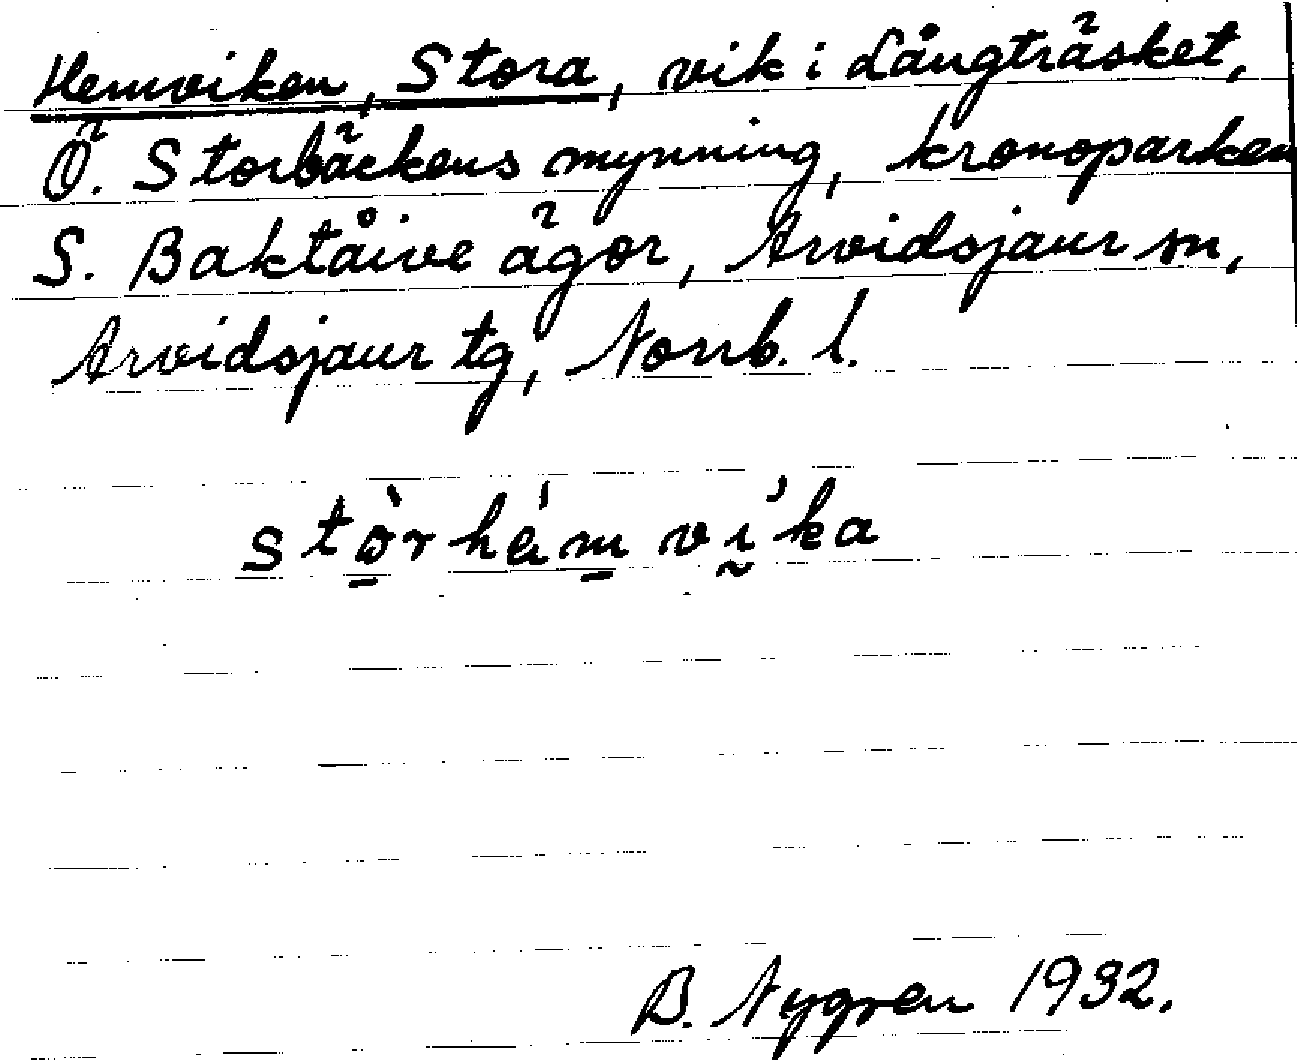 Hemviken, Stora, vik i Långträsket,
Ö. Storbäckens mynning, kronoparken
S. Baktåive ägor, Arvidsjaur sn,
Arvidsjaur tg, Norrb. l.
stò̠rhém̠ vḭ́ka
B. Nygren 1932.